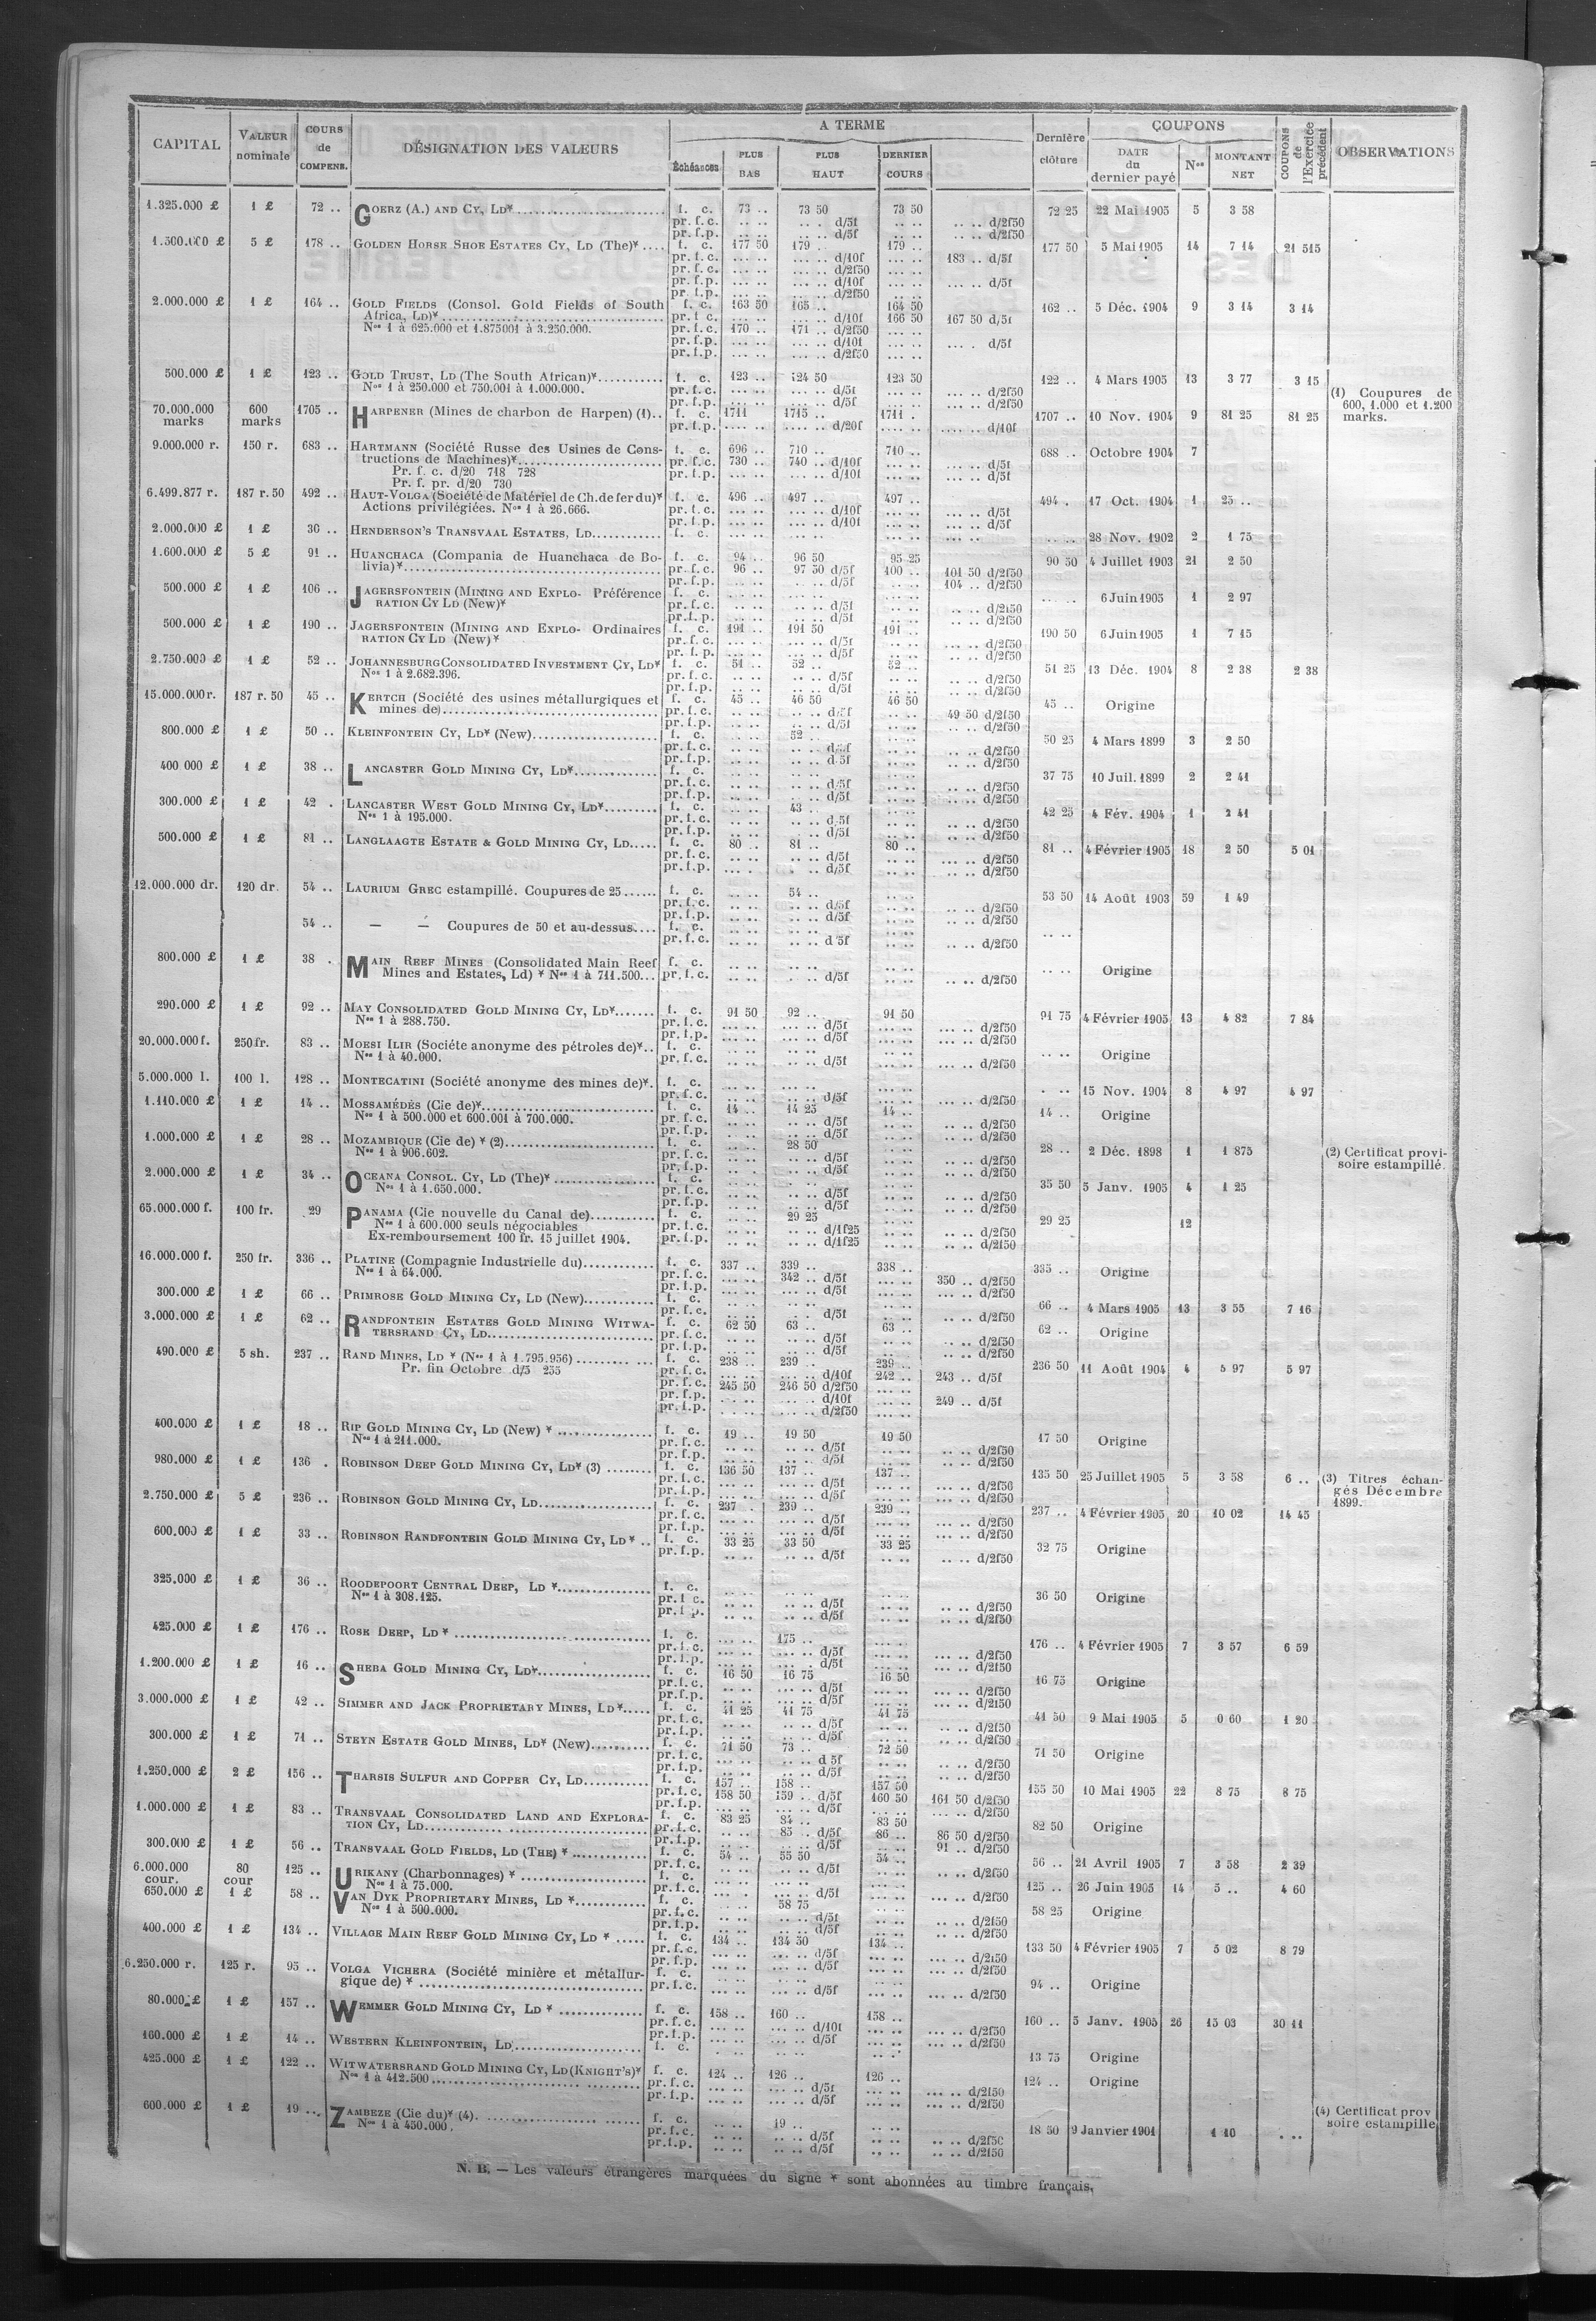 CAPITAL | VALEUR nominale | COURS de COMPENS. | DÉSIGNATION DES VALEURS | A TERME | Dernière clôture | COUPONS | COUPONS de l'Exercice précédent | OBSERVATIONS
Échéances | PLUS BAS | PLUS HAUT | DERNIER COURS | DATE du dernier payé | Nos | MONTANT NET
1.325.000 £ 1 £ 72 .. GOERZ (A.) AND CY, LD* f. c. 73 .. 73 50 73 50 72 25 22 Mai 1905 5 3 58
pr. f. c. .. .. .. . d/5f .. .. .. .. d/2f50
pr. f. p. .. .. .. .. d/5f .. .. .. .. d/2f50
1.500.000 £ 5 £ 178 .. GOLDEN HORSE SHOE ESTATES CY, LD (The)* f. c. 177 50 179 .. 179 .. 177 50 5 Mai 1905 14 7 14 21 515
pr. f. c. ... .. ... .. d/10f ... .. 183 .. d/5f
pr. f. c. ... .. ... .. d/2f50 ... ..
pr. f. p. ... .. ... .. d/10f ... .. d/5f
pr. f. p. ... .. ... .. d/2f50
2.000.000 £ 1 £ 164 .. GOLD FIELDS (Consol. Gold Fields of South f. c. 163 50 165 .. 164 50 162 .. 5 Déc. 1904 9 3 14 3 14
Africa, LD)* pr. f. c. ... .. ... .. d/10f 166 50 167 50 d/5f
Nos 1 à 625.000 et 1.875001 à 3.250.000. pr. f. c. 170 .. 171 .. d/2f50 ... ..
pr. f. p. ... .. ... .. d/10f ... .. ... . d/5f
pr. f. p. ... .. ... .. d/2f50 ... ..
500.000 £ 1 £ 123 .. GOLD TRUST, LD (The South African)* f. c. 123 .. 124 50 123 50 122 .. 4 Mars 1905 13 3 77 3 15
Nos 1 à 250.000 et 750.001 à 1.000.000. pr. f. c. ... .. ... .. d/5f ... .. d/2f50
pr. f. p. ... .. ... .. d/5f ... .. d/2f50
70.000.000 marks 600 marks 1705 .. HARPENER (Mines de charbon de Harpen) (1).. f. c. 1711 1715 .. 1711 .. 1707 .. 10 Nov. 1904 9 81 25 81 25 (1) Coupures de 600, 1.000 et 1.200 marks.
pr. f. p. .... .. .... .. d/20f .... .. .... .. d/10f
9.000.000 r. 150 r. 683 .. HARTMANN (Société Russe des Usines de Cons- f. c. 696 .. 710 .. 710 .. 688 .. Octobre 1904 7
tructions de Machines)* pr. f. c. 730 .. 740 .. d/10f ... .. ... .. d/5f
Pr. f. c. d/20 718 728 pr. f. p. ... .. ... .. d/10f ... .. ... .. d/5f
Pr. f. pr. d/20 730
6.499.877 r. 187 r. 50 492 .. HAUT-VOLGA (Société de Matériel de Ch. de fer du)* f. c. 496 .. 497 .. 497 .. 494 . 17 Oct. 1904 1 25 ..
Actions privilégiées. Nos 1 à 26.666. pr. f. c. ... .. ... .. d/10f ... .. ... .. d/5f
pr. f. p. ... .. ... .. d/10f ... .. ... .. d/5f
2.000.000 £ 1 £ 30 .. HENDERSON'S TRANSVAAL ESTATES, LD f. c. ... .. ... .. ... .. .. .. 28 Nov. 1902 2 1 75
1.600.000 £ 5 £ 91 .. HUANCHACA (Compania de Huanchaca de Bo- f. c. 94 .. 96 50 95 25 90 50 4 Juillet 1903 21 2 50
livia)* pr. f. c. 96 .. 97 50 d/5f 100 .. 101 50 d/2f50
pr. f. p. .. .. .. .. d/5f .. .. 104 .. d/2f50
500.000 £ 1 £ 106 .. JAGERSFONTEIN (MINING AND EXPLO- Préférence f. c. .. .. .. .. .. .. .. .. 6 Juin 1905 1 2 97
RATION CY LD (New)* pr. f. c. .. .. .. .. d/5f .. .. .. .. d/2f50
pr. f. p. ... .. ... .. d/5f .. .. d/2f50
500.000 £ 1 £ 190 .. JAGERSFONTEIN (MINING AND EXPLO- Ordinaires f. c. 191 .. 191 50 191 .. 190 50 6 Juin 1905 1 7 15
RATION CY LD (New)* pr. f. c. ... .. ... .. d/5f ... .. .. .. d/2f50
pr. f. p. ... .. ... .. d/5f .. .. d/2f50
2.750.000 £ 1 £ 52 .. JOHANNESBURG CONSOLIDATED INVESTMENT CY, LD* f. c. 51 .. 52 .. 52 .. 51 25 13 Déc. 1904 8 2 38 2 38
Nos 1 à 2.682.396. pr. f. c. .. .. .. .. d/5f .. .. .. .. d/2f50
pr. f. p. .. .. .. .. d/5f .. .. .. .. d/2f50
15.000.000 r. 187 r. 50 45 .. KERTCH (Société des usines métallurgiques et f. c. 45 .. 46 50 46 50 45 .. Origine
mines de) pr. f. c. .. .. .. .. d/5f .. .. 49 50 d/2f50
pr. f. p. .. .. .. .. d/5f .. .. .. .. d/2f50
800.000 £ 1 £ 50 .. KLEINFONTEIN CY, LD* (New) f. c. 52 .. 50 25 4 Mars 1899 3 2 50
pr. f. c. .. .. .. .. d/5f .. .. .. .. d/2f50
pr. f. p. .. .. .. .. d/5f .. .. .. .. d/2f50
400 000 £ 1 £ 38 .. LANCASTER GOLD MINING CY, LD* f. c. .. .. .. .. .. .. 37 75 10 Juil. 1899 2 2 41
pr. f. c. .. .. .. .. d/5f .. .. .. .. d/2f50
pr. f. p. .. .. .. .. d/5f .. .. .. .. d/2f50
300.000 £ 1 £ 42 . LANCASTER WEST GOLD MINING CY, LD* f. c. .. .. 43 .. 42 25 4 Fév. 1904 1 2 41
Nos 1 à 195.000. pr. f. c. .. .. .. .. d/5f .. .. .. .. d/2f50
pr. f. p. .. .. .. .. d/5f .. .. .. .. d/2f50
500.000 £ 1 £ 81 .. LANGLAAGTE ESTATE & GOLD MINING CY, LD f. c. 80 .. 81 .. 80 .. 81 .. 4 Février 1905 18 2 50 5 01
pr. f. c. ... .. .. .. d/5f ... .. ... .. d/2f50
pr. f. p. ... . . .. d/5f ... .. ... .. d/2f50
12.000.000 dr. 120 dr. 54 .. LAURIUM GREC estampillé. Coupures de 25 f. c. .. .. 54 .. 53 50 14 Août 1903 59 1 49
pr. f. c. .. .. .. .. d/5f .. .. .. .. d/2f50
pr. f. p. .. .. .. .. d/5f .. .. .. .. d/2f50
54 .. — — Coupures de 50 et au-dessus f. c. .. .. .. .. .. .. .. ..
pr. f. c. .. .. .. .. d/5f .. .. .. .. d/2f50
800.000 £ 1 £ 38 . MAIN REEF MINES (Consolidated Main Reef f. c. .. .. .. .. .. .. .. .. Origine
Mines and Estates, Ld) * Nos 1 à 711.500 pr. f. c. .. .. .. .. d/5f .. .. .. .. d/2f50
290.000 £ 1 £ 92 .. MAY CONSOLIDATED GOLD MINING CY, LD* f. c. 91 50 92 .. 91 50 91 75 4 Février 1905 13 4 82 7 84
Nos 1 à 288.750. pr. f. c. ... .. ... .. d/5f ... .. ... .. d/2f50
pr. f. p. ... .. ... .. d/5f ... .. ... .. d/2f50
20.000.000 f. 250 fr. 83 .. MOESI ILIR (Sociéte anonyme des pétroles de)* f. c. .. .. .. .. .. .. .. .. Origine
Nos 1 à 40.000. pr. f. c. .. .. .. .. d/5f .. .. ... .. d/2f50
5.000.000 l. 100 l. 128 .. MONTECATINI (Société anonyme des mines de)*. f. c. ... .. ... .. ... .. . .. 15 Nov. 1904 8 4 97 4 97
pr. f. c. ... .. ... .. d/5f ... .. ... .. d/2f50
1.110.000 £ 1 £ 14 .. MOSSAMÉDÈS (Cie de)* f. c. 14 .. 14 25 14 .. 14 .. Origine
Nos 1 à 500.000 et 600.001 à 700.000. pr. f. c. .. .. .. .. d/5f .. .. .. .. d/2f50
pr. f. p. .. .. .. .. d/5f .. .. .. .. d/2f50
1.000.000 £ 1 £ 28 .. MOZAMBIQUE (Cie de) * (2) f. c. 28 50 28 .. 2 Déc. 1898 1 1 875 (2) Certificat provi-soire estampillé.
Nos 1 à 906.602. pr. f. c. .. .. .. .. d/5f .. .. .. .. d/2f50
pr. f. p. .. .. .. .. d/5f .. .. .. .. d/2f50
2.000.000 £ 1 £ 34 .. OCEANA CONSOL. CY, LD (The)* f. c. 35 50 5 Janv. 1905 4 1 25
Nos 1 à 1.650.000. pr. f. c. .. .. .. .. d/5f .. .. .. .. d/2f50
pr. f. p. .. .. .. .. d/5f .. .. .. .. d/2f50
65.000.000 f. 100 fr. 29 PANAMA (Cie nouvelle du Canal de) f. c. .. .. 29 25 29 25 12
Nos 1 à 600.000 seuls négociables pr. f. c. .. .. .. .. d/1f25 .. .. .. .. d/2f50
Ex-remboursement 100 fr. 15 juillet 1904. pr. f. p. .. .. .. .. d/1f25 .. .. .. .. d/2f50
16.000.000 f. 250 fr. 336 .. PLATINE (Compagnie Industrielle du) f. c. 337 .. 339 .. 338 .. 335 .. Origine
Nos 1 à 64.000. pr. f. c. ... .. 342 .. d/5f ... .. 350 .. d/2f50
pr. f. p. ... .. ... .. d/5f ... .. ... .. d/2f50
300.000 £ 1 £ 66 .. PRIMROSE GOLD MINING CY, LD (New) f. c. .. .. .. .. .. .. 66 .. 4 Mars 1905 13 3 55 7 16
pr. f. c. .. .. .. .. d/5f .. .. .. .. d/2f50
3.000.000 £ 1 £ 62 .. RANDFONTEIN ESTATES GOLD MINING WITWA- f. c. 62 50 63 .. 63 .. 62 .. Origine
TERSRAND CY, LD pr. f. c. .. .. .. .. d/5f .. .. .. .. d/2f50
pr. f. p. .. .. .. .. d/5f .. .. .. .. d/2f50
490.000 £ 5 sh. 237 .. RAND MINES, LD * (Nos 1 à 1.795.956) f. c. 238 .. 239 .. 239 .. 236 50 11 Août 1904 4 5 97 5 97
Pr. fin Octobre d/5 255 pr. f. c. ... .. ... .. d/10f 242 .. 243 .. d/5f
pr. f. c. 245 50 246 50 d/2f50 ... ..
pr. f. p. ... .. ... .. d/10f ... .. 249 .. d/5f
pr. f. p. ... .. ... .. d/2f50 ... ..
400.000 £ 1 £ 18 .. RIP GOLD MINING CY, LD (New) * f. c. 19 .. 19 50 19 50 17 50 Origine
Nos 1 à 211.000. pr. f. c. .. .. .. .. d/5f .. .. .. .. d/2f50
pr. f. p. .. .. .. .. d/5f .. .. .. .. d/2f50
980.000 £ 1 £ 136 . ROBINSON DEEP GOLD MINING CY, LD* (3) f. c. 136 50 137 .. 137 .. 135 50 25 Juillet 1905 5 3 58 6 .. (3) Titres échan-gés Décembre 1899.
pr. f. c. ... .. ... .. d/5f ... .. ... .. d/2f50
pr. f. p. ... .. ... .. d/5f ... .. ... .. d/2f50
2.750.000 £ 5 £ 236 .. ROBINSON GOLD MINING CY, LD f. c. 237 . 239 .. 239 .. 237 .. 4 Février 1905 20 10 02 14 45
pr. f. c. ... .. ... .. d/5f ... .. ... .. d/2f50
pr. f. p. ... .. ... .. d/5f ... .. ... .. d/2f50
600.000 £ 1 £ 33 .. ROBINSON RANDFONTEIN GOLD MINING CY, LD * .. f. c. 33 25 33 50 33 25 32 75 Origine
pr. f. p. .. .. .. .. d/5f .. .. .. .. d/2f50
325.000 £ 1 £ 36 .. ROODEPOORT CENTRAL DEEP, LD * f. c. .. .. .. .. .. .. 36 50 Origine
Nos 1 à 308.125. pr. f. c. .. .. .. .. d/5f .. .. .. .. d/2f50
pr. f. p. .. .. .. .. d/5f .. .. .. .. d/2f50
425.000 £ 1 £ 176 .. ROSE DEEP, LD * f. c. ... .. 175 .. ... .. 176 .. 4 Février 1905 7 3 57 6 59
pr. f. c. ... .. ... .. d/5f ... .. ... .. d/2f50
pr. f. p. ... .. ... .. d/5f ... .. ... .. d/2f50
1.200.000 £ 1 £ 16 .. SHEBA GOLD MINING CY, LD* f. c. 16 50 16 75 16 50 16 75 Origine
pr. f. c. .. .. ... .. d/5f ... .. d/2f50
pr. f. p. .. .. ... .. d/5f ... .. d/2f50
3.000.000 £ 1 £ 42 .. SIMMER AND JACK PROPRIETARY MINES, LD* f. c. 41 25 41 75 41 75 41 50 9 Mai 1905 5 0 60 1 20
pr. f. c. .. .. .. .. d/5f .. .. .. .. d/2f50
pr. f. p. .. .. .. .. d/5f .. .. .. .. d/2f50
300.000 £ 1 £ 71 .. STEYN ESTATE GOLD MINES, LD* (New) f. c. 71 50 73 .. 72 50 71 50 Origine
pr. f. c. .. .. .. .. d 5f .. .. .. .. d/2f50
pr. f. p. .. .. .. .. d/5f .. .. .. .. d/2f50
1.250.000 £ 2 £ 156 .. THARSIS SULFUR AND COPPER CY, LD f. c. 157 .. 158 .. 157 50 155 50 10 Mai 1905 22 8 75 8 75
pr. f. c. 158 50 159 .. d/5f 160 50 161 50 d/2f50
pr. f. p. ... .. ... .. d/5f ... .. ... .. d/2f50
1.000.000 £ 1 £ 83 .. TRANSVAAL CONSOLIDATED LAND AND EXPLORA- f. c. 83 25 84 .. 83 50 82 50 Origine
TION CY, LD pr. f. c. .. .. 85 .. d/5f 86 .. 86 50 d/2f50
pr. f. p. .. .. .. .. d/5f .. .. 91 .. d/2f50
300.000 £ 1 £ 56 .. TRANSVAAL GOLD FIELDS, LD (THE) * f. c. 54 .. 55 50 54 .. 56 .. 21 Avril 1905 7 3 58 2 39
pr. f. c. .. .. .. .. d/5f .. .. .. .. d/2f50
6.000.000 cour. 80 cour 125 .. URIKANY (Charbonnages) * f. c. 125 .. 26 Juin 1905 14 5 .. 4 60
Nos 1 à 75.000. pr. f. c. ... . ... .. d/5f ... .. ... .. d/2f50
650.000 £ 1 £ 58 .. VAN DYK PROPRIETARY MINES, LD * f. c. 58 75 58 25 Origine
Nos 1 à 500.000. pr. f. c. .. .. .. .. d/5f .. .. .. .. d/2f50
pr. f. p. .. .. .. .. d/5f .. .. .. .. d/2f50
400.000 £ 1 £ 134 .. VILLAGE MAIN REEF GOLD MINING CY, LD * f. c. 134 .. 134 50 134 .. 133 50 4 Février 1905 7 5 02 8 79
pr. f. c. ... .. ... .. d/5f ... .. ... .. d/2f50
pr. f. p. ... .. ... .. ... .. ... .. d/2f50
6.250.000 r. 125 r. 95 .. VOLGA VICHERA (Société minière et métallur- f. c. .. .. .. .. .. .. 94 .. Origine
gique de) * pr. f. c. .. .. .. .. d/5f .. .. .. .. d/2f50
80.000 £ 1 £ 157 .. WEMMER GOLD MINING CY, LD * f. c. 158 .. 160 .. 158 .. 160 .. 5 Janv. 1905 26 15 03 30 11
pr. f. c. ... .. ... .. d/10f ... .. ... .. d/2f50
pr. f. p. ... .. ... .. d/5f ... .. ... .. d/2f50
160.000 £ 1 £ 14 .. WESTERN KLEINFONTEIN, LD f. c. .. .. .. .. .. .. 13 75 Origine
425.000 £ 1 £ 122 .. WITWATERSRAND GOLD MINING CY, LD (KNIGHT'S)* f. c. 124 .. 126 .. 126 .. 124 .. Origine
Nos 1 à 412.500 pr. f. c. ... .. ... .. d/5f ... .. ... .. d/2f50
pr. f. p. ... .. ... .. d/5f ... .. ... .. d/2f50
600.000 £ 1 £ 19 .. ZAMBEZE (Cie du)* (4). f. c. .. .. 19 .. 18 50 9 Janvier 1901 1 10 . .. (4) Certificat prov soire estampille
Nos 1 à 450.000. pr. f. c. .. .. .. .. d/5f .. .. .. .. d/2f50
pr. f. p. .. .. .. .. d/5f .. .. .. .. d/2f50
N. B. — Les valeurs étrangères marquées du signe * sont abonnées au timbre français.